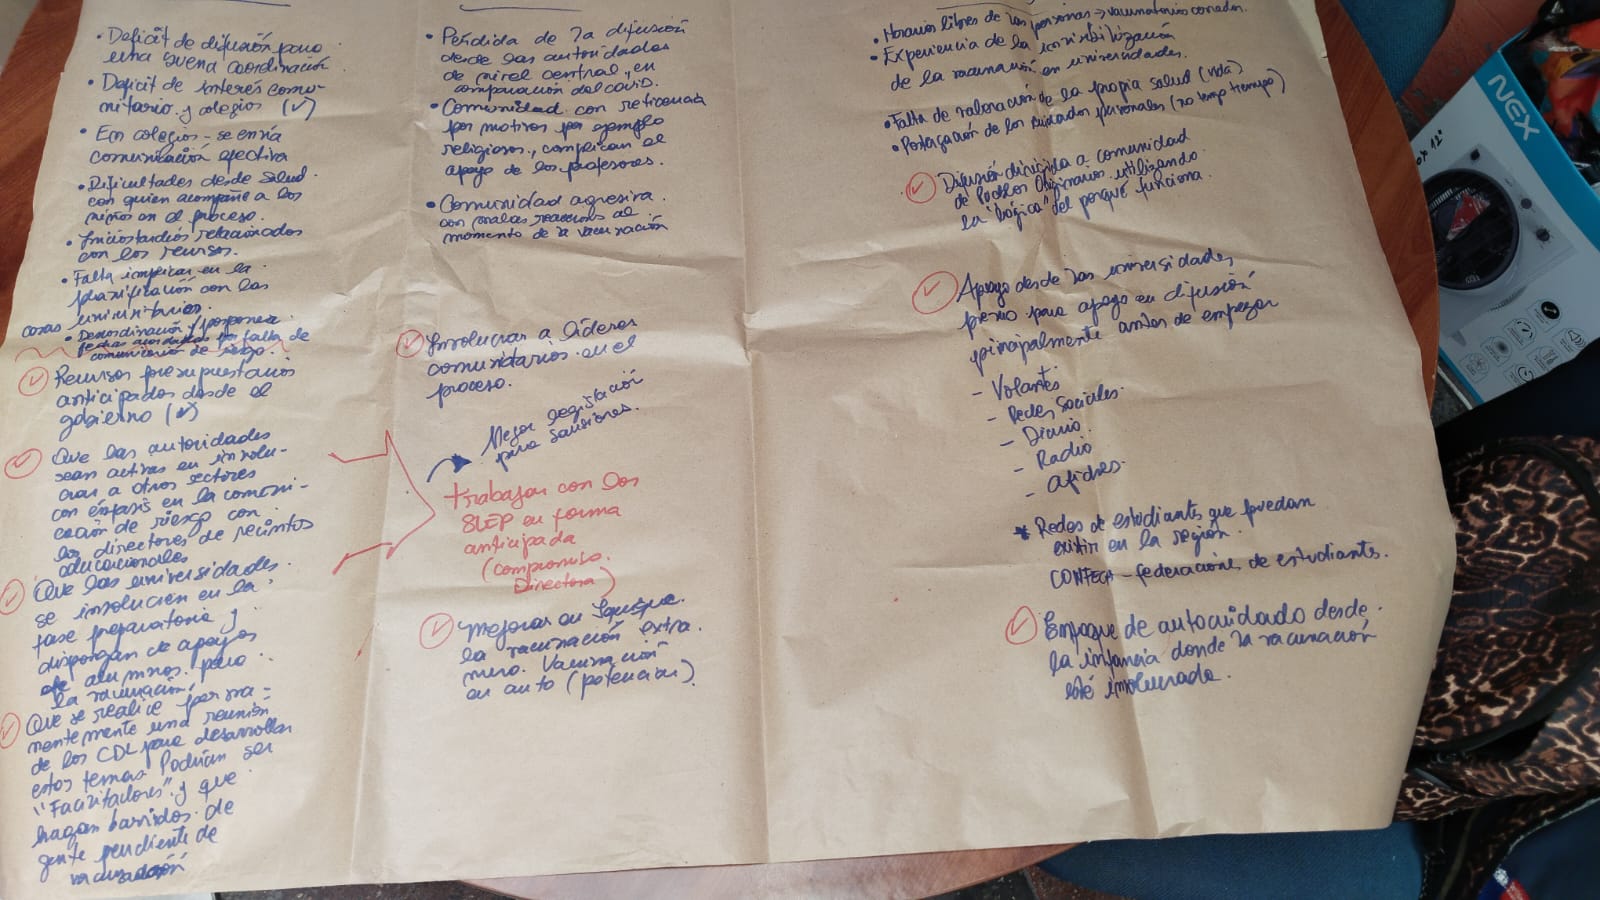 • Deficit de difusión para
una buena coordinación
• Deficit de interés comu-
nitario y colegios (✓)
• En colegios - se envía
comunicación efectiva
• Dificultades desde salud
con quien acompañe a los
niños en el proceso.
• Inicios tardíos relacionados
con los recursos.
• Falta implicar en la
planificación con las
universitarios.
cosas
• Descordinación y posponer
fechas acordadas por falta de
comunicación de riesgo.
✓ Recursos presupuestarios
anticipados desde el
gobierno (✓)
✓ Que las autoridades
sean activas en involu-
crar a otros sectores
con énfasis en la comuni-
cación de riesgo con
los directores de recintos
educacionales
✓ Que las universidades
se involucren en la
fase preparatoria y
dispongan de apoyos
de alumnos para
la vacunación.
✓ Que se realice perma-
nentemente una reunión
de los CDL para desarrollar
estos temas Podrían ser
"Facilitadores" y que
hagan barridos de
gente pendiente de
vacunación
• Pérdida de la difusión
desde las autoridades
de nivel central, en
comparación del covid.
• Comunidad con reticencia
por motivos por ejemplo
religiosos, complican el
apoyo de los profesores.
• Comunidad agresiva
con malas reacciones al
momento de la vacunación
✓ Involucrar a líderes
comunitarios en el
proceso.
Mejor legislación
para sanciones.
trabajar con los
SLEP en forma
anticipada
(compromiso
Directora)
✓ Mejorar en Iquique
la vacunación extra
muro. Vacunación
en auto (potenciar).
• Horarios libres de las personas → vacunatorios cerrados.
• Experiencia de la
de la vacunación en universidades.
• Falta de valoración de la propia salud (vida)
• Postergación de los cuidados personales (no tengo tiempo)
✓ Difusión dirigida a comunidad
de Pueblos Originarios utilizando
la "lógica" del porqué funciona.
✓ Apoyo desde las universidades
previo para apoyo en difusión
principalmente antes de empezar
- Volantes
- Redes Sociales.
- Diario.
- Radio
- Afiches.
* Redes de estudiantes que puedan
existir en la región.
CONFECH - federaciones de estudiantes.
✓ Enfoque de autocuidado desde
la infancia donde la vacunación
esté involucrada.
NEX
12"